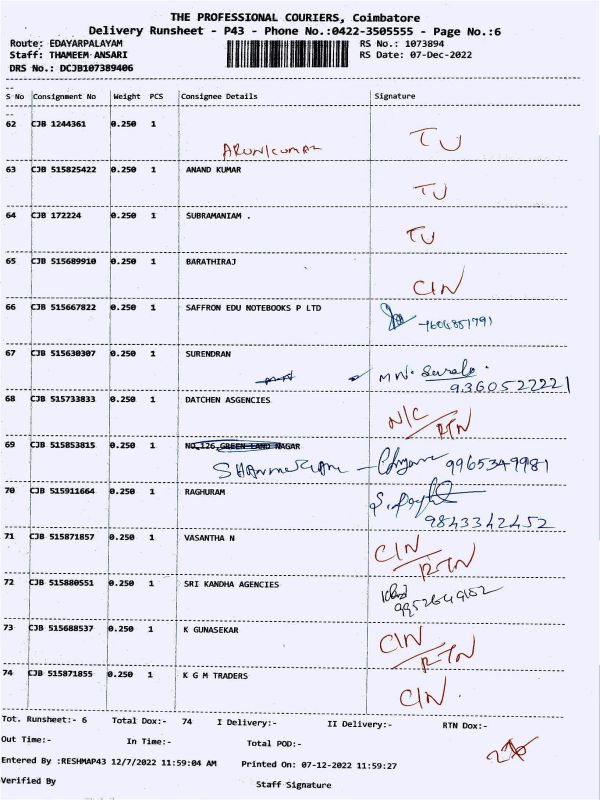 THE PROFESSIONAL COURIERS, Coimbatore
Delivery Runsheet - P43 - Phone No.:0422-3505555 - Page No.:6
Route: EDAYARPALAYAM RS No.: 1073894
Staff: THAMEEM ANSARI RS Date: 07-Dec-2022
DRS No.: DCJB107389406
S No Consignment No Weight PCS Consignee Details Signature
62 CJB 1244361 0.250 1 TU
ARUNKUMAR
63 CJB 515825422 0.250 1 ANAND KUMAR
TU
64 CJB 172224 0.250 1 SUBRAMANIAM .
TU
65 CJB 515689910 0.250 1 BARATHIRAJ
CIN
66 CJB 515667822 0.250 1 SAFFRON EDU NOTEBOOKS P LTD
67 CJB 515630307 0.250 1 SURENDRAN
9360522221
68 CJB 515733833 0.250 1 DATCHEN ASGENCIES
N/C/RTN
69 CJB 515853815 0.250 1 NO,126 GREEN LAND NAGAR
9965349981
70 CJB 515911664 0.250 1 RAGHURAM
9843342452
71 CJB 515871857 0.250 1 VASANTHA N
CIN/RTN
72 CJB 515880551 0.250 1 SRI KANDHA AGENCIES
73 CJB 515688537 0.250 1 K GUNASEKAR
CIN/RTN
74 CJB 515871855 0.250 1 K G M TRADERS
CIN.
Tot. Runsheet:- 6 Total Dox:- 74 I Delivery:- II Delivery:- RTN Dox:-
Out Time:- In Time:- Total POD:-
Entered By :RESHMAP43 12/7/2022 11:59:04 AM Printed On: 07-12-2022 11:59:27
Verified By Staff Signature